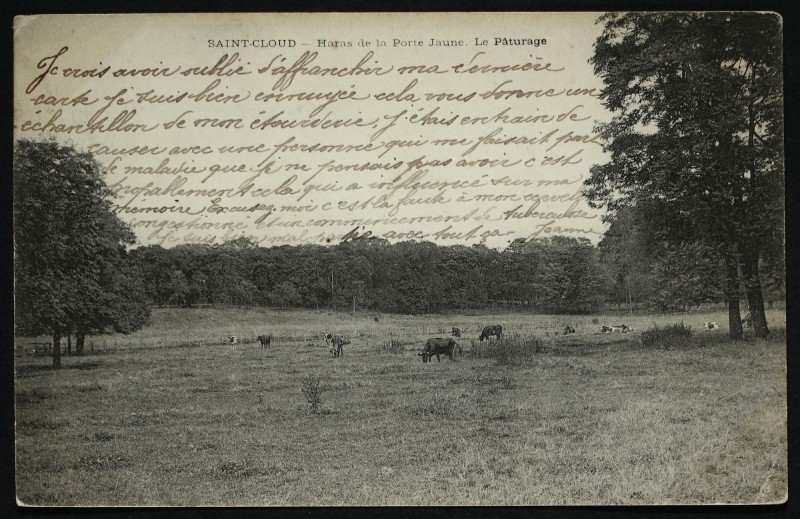 SAINT-CLOUD – Haras de la Porte Jaune. Le Pâturage
Je crois avoir oublié d'affranchir ma dernière
carte je suis bien ennuyée cela vous donne un
échantillon de mon étourderie, j'étais entrain de
causer avec une personne qui me faisait part
de maladie que je ne pensais pas avoir c'est
probablement cela qui a influencé sur ma
mémoire Excusez moi c'est la faute à mon cerveau
congestionné et un commencement de tuberculose
Je suis bien mal partie avec tout ça Jeanne